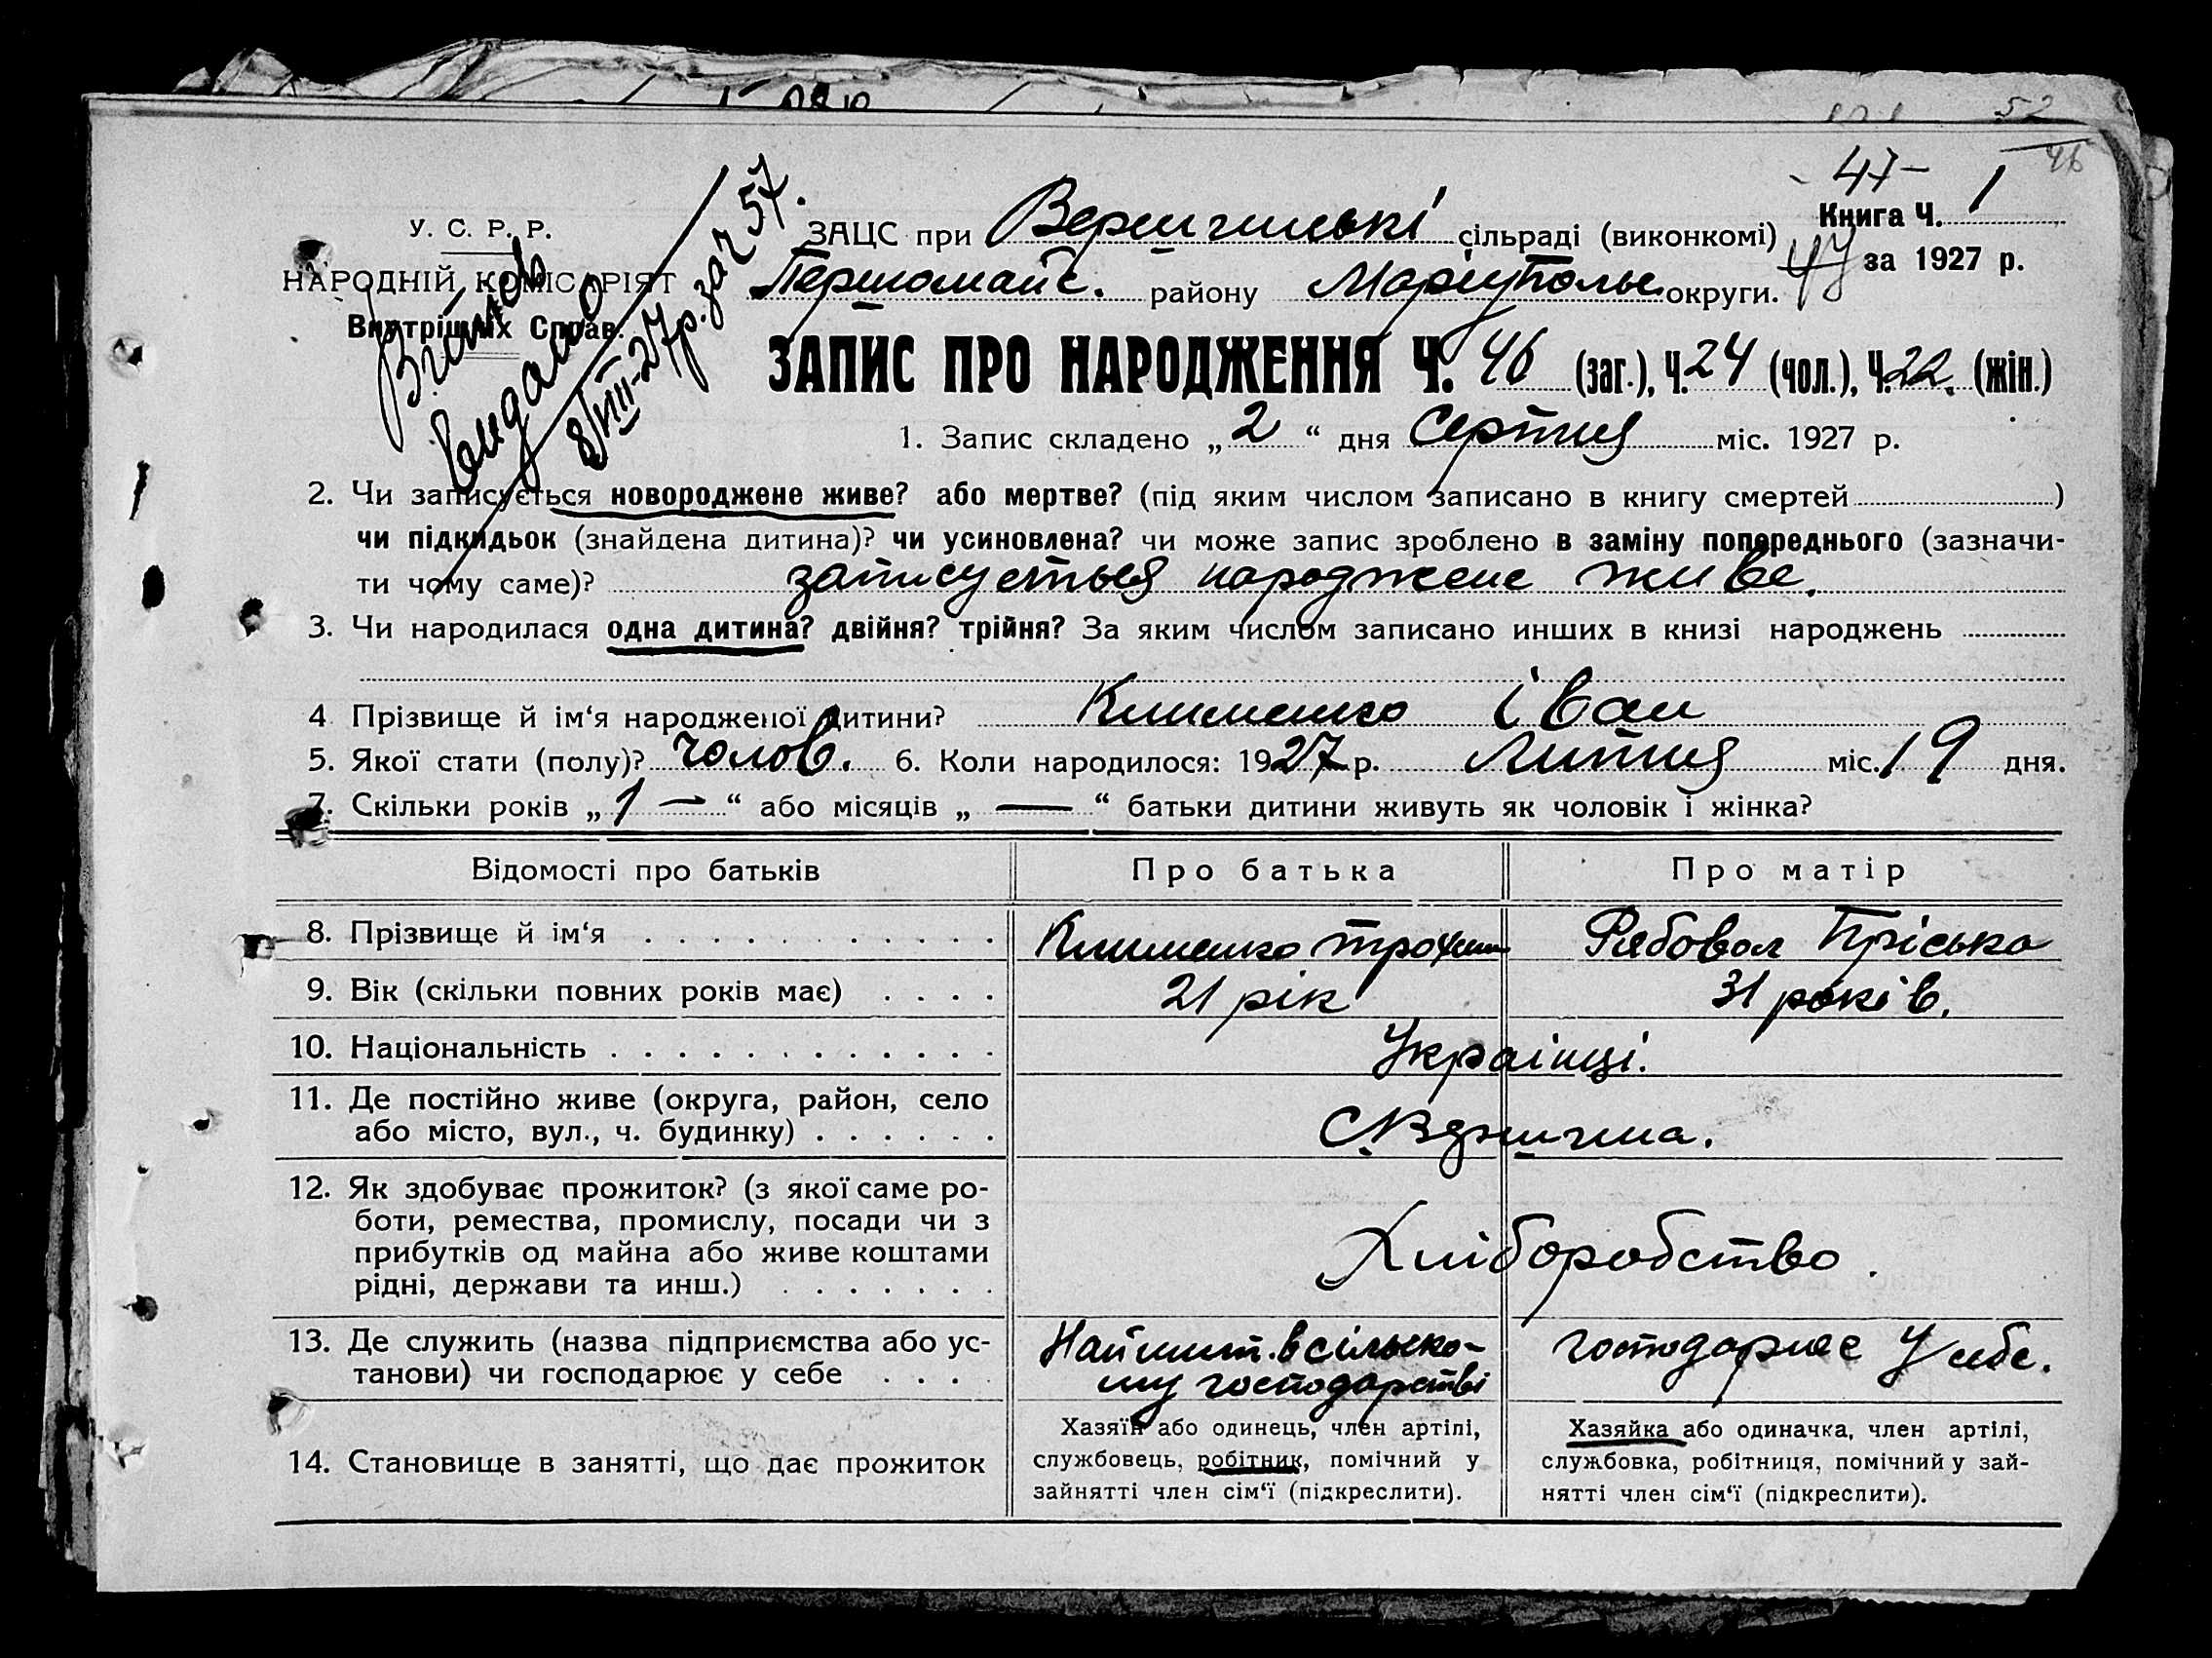 52
46
- 47 -
У. С. Р. Р.
НАРОДНІЙ КОМІСАРІЯТ
Внутрішніх Справ.
видано
8/VIII-27р. за ч 57.
ЗАЦС при Вершинські сільраді (виконкомі)
Книга Ч. 1
за 1927 р.
Першомайс. району Маріупольс. округи.
ЗАПИС ПРО НАРОДЖЕННЯ Ч. 46 (заг.), Ч. 24 (чол.), Ч. 22. (жін.)
1. Запис складено „ 2 “ дня Серпня міс. 1927 р.
2. Чи записується новороджене живе? або мертве? (під яким числом записано в книгу смертей )
чи підкидьок (знайдена дитина)? чи усиновлена? чи може запис зроблено в заміну попереднього (зазначи-
ти чому саме)? записується народжене живе.
3. Чи народилася одна дитина? двійня? трійня? За яким числом записано инших в книзі народжень
4 Прізвище й ім‘я народженої дитини? Клименко Іван
5. Якої стати (полу)? чолов. 6. Коли народилося: 1927 р. Липня міс. 19 дня.
7. Скільки років „ 1 — “ або місяців „ — “ батьки дитини живуть як чоловік і жінка?
Відомості про батьків Про батька Про матір
8. Прізвище й ім‘я Клименко Трохим Рябовол Пріська
9. Вік (скільки повних років має) 21 рік 31 років.
10. Національність Українці.
11. Де постійно живе (округа, район, село
або місто, вул., ч. будинку) С. Вершина.
12. Як здобуває прожиток? (з якої саме ро-
боти, ремества, промислу, посади чи з
прибутків од майна або живе коштами
рідні, держави та инш.) Хліборобство.
13. Де служить (назва підприємства або ус-
танови) чи господарює у себе
Наймит. в сілько-
му господарстві
господарює У себе.
14. Становище в занятті, що дає прожиток
Хазяїн або одинець, член артілі,
службовець, робітник, помічний у
зайнятті член сім‘ї (підкреслити).
Хазяйка або одиначка, член артілі,
службовка, робітниця, помічний у зай-
нятті член сім‘ї (підкреслити).